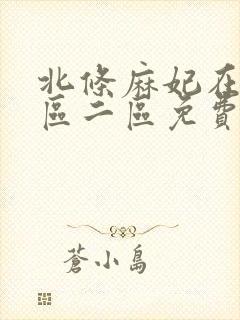 北條麻妃在
區二區免費
蒼小島